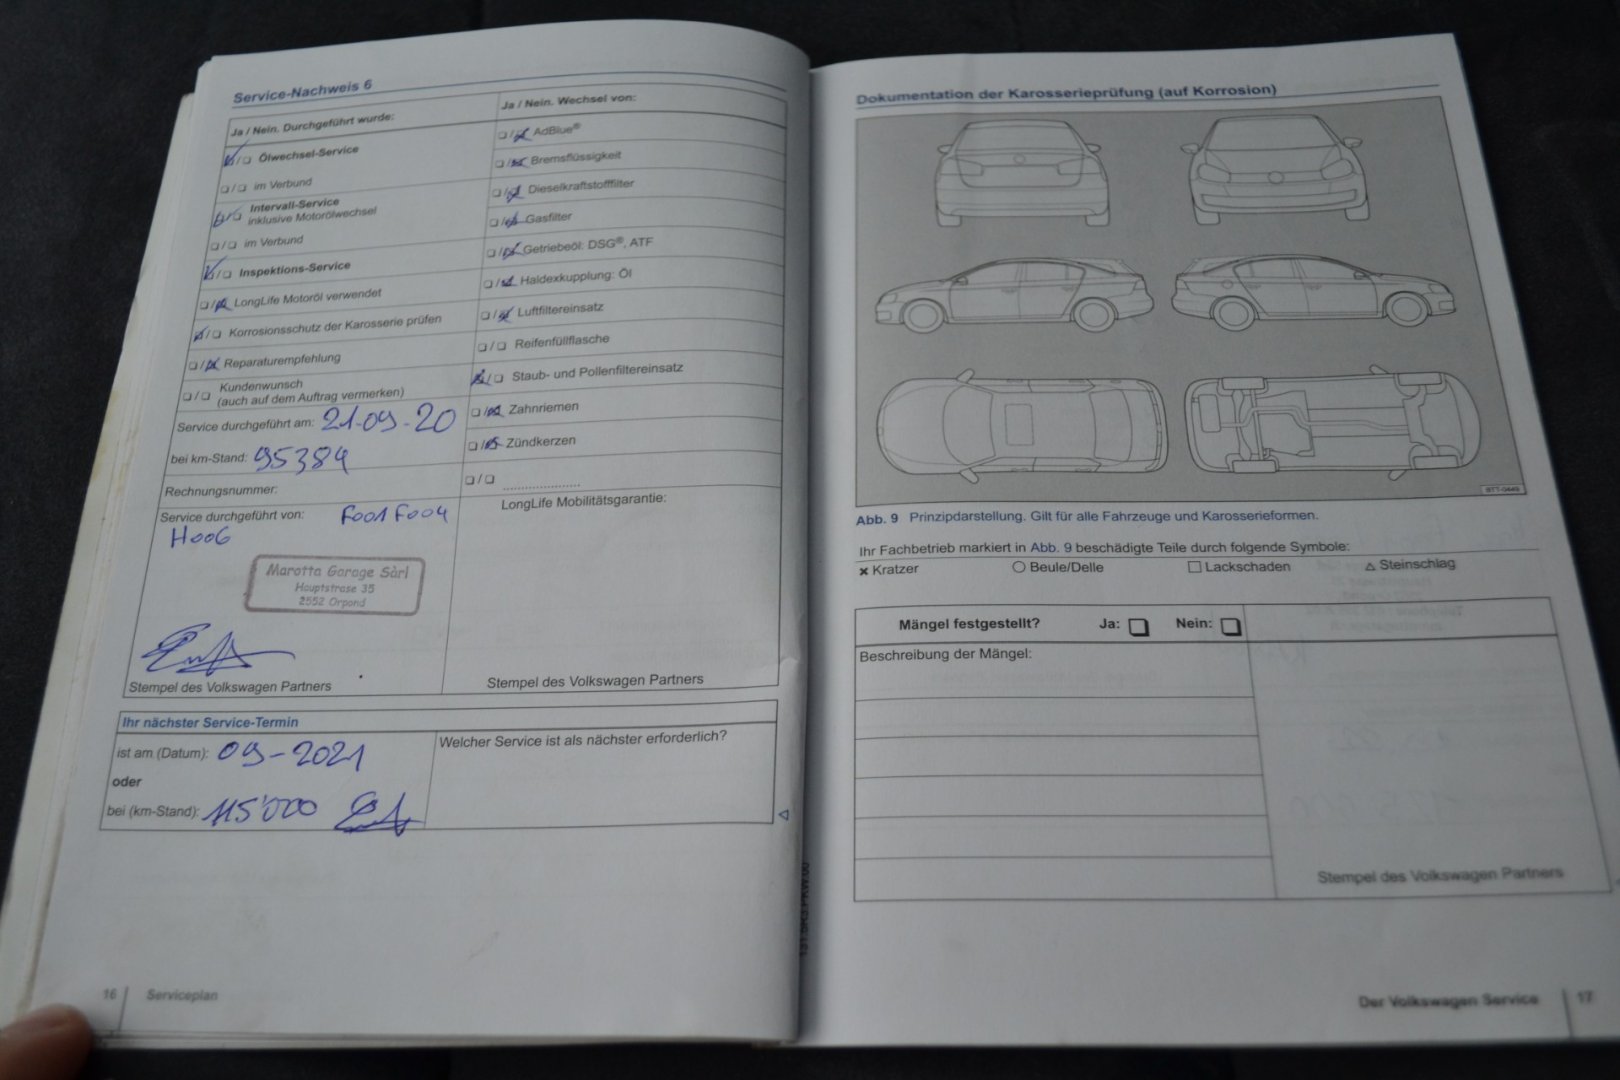 Service-Nachweis 6
Ja / Nein. Durchgeführt wurde:
☑/❑ Ölwechsel-Service
❑/❑ im Verbund
☑/❑ Intervall-Service
inklusive Motorölwechsel
❑/❑ im Verbund
☑/❑ Inspektions-Service
❑/☒ LongLife Motoröl verwendet
☑/❑ Korrosionsschutz der Karosserie prüfen
❑/☒ Reparaturempfehlung
❑/❑ Kundenwunsch
(auch auf dem Auftrag vermerken)
Service durchgeführt am: 21.09.20
bei km-Stand: 95384
Rechnungsnummer:
Service durchgeführt von: F001 F004
H006
Marotta Garage Sàrl
Hauptstrase 35
2552 Orpond
Stempel des Volkswagen Partners
Ja / Nein. Wechsel von:
❑/☒ AdBlue®
❑/☒ Bremsflüssigkeit
❑/☒ Dieselkraftstofffilter
❑/☒ Gasfilter
❑/☒ Getriebeöl: DSG®, ATF
❑/☒ Haldexkupplung: Öl
❑/☒ Luftfiltereinsatz
❑/❑ Reifenfüllflasche
☒/❑ Staub- und Pollenfiltereinsatz
❑/☒ Zahnriemen
❑/☒ Zündkerzen
❑/❑ ......................
LongLife Mobilitätsgarantie:
Stempel des Volkswagen Partners
Ihr nächster Service-Termin
ist am (Datum): 09-2021
oder
bei (km-Stand): 115'000
Welcher Service ist als nächster erforderlich?
16 Serviceplan
Dokumentation der Karosserieprüfung (auf Korrosion)
BTT-0449
Abb. 9 Prinzipdarstellung. Gilt für alle Fahrzeuge und Karosserieformen.
Ihr Fachbetrieb markiert in Abb. 9 beschädigte Teile durch folgende Symbole:
✖ Kratzer ○ Beule/Delle □ Lackschaden △ Steinschlag
Mängel festgestellt? Ja: ❑ Nein: ❑
Beschreibung der Mängel:
Stempel des Volkswagen Partners
Der Volkswagen Service 17